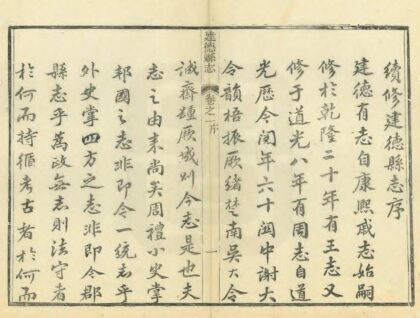 續修建德縣志序
建德有志自康熙戚志始嗣
修於乾隆二十年有王志又
修于道光八年有周志自道
光歷今閱年六十閩中謝大
令韻梧振厥緒楚南吳大令
建德縣志
卷之一序
一
誠齋踵厥成則今志是也夫
志之由来尚矣周禮小史掌
邦國之志非即今一統志乎
外史掌四方之志非即今郡
縣志乎為政無志則法守者
於何而持循考古者於何而